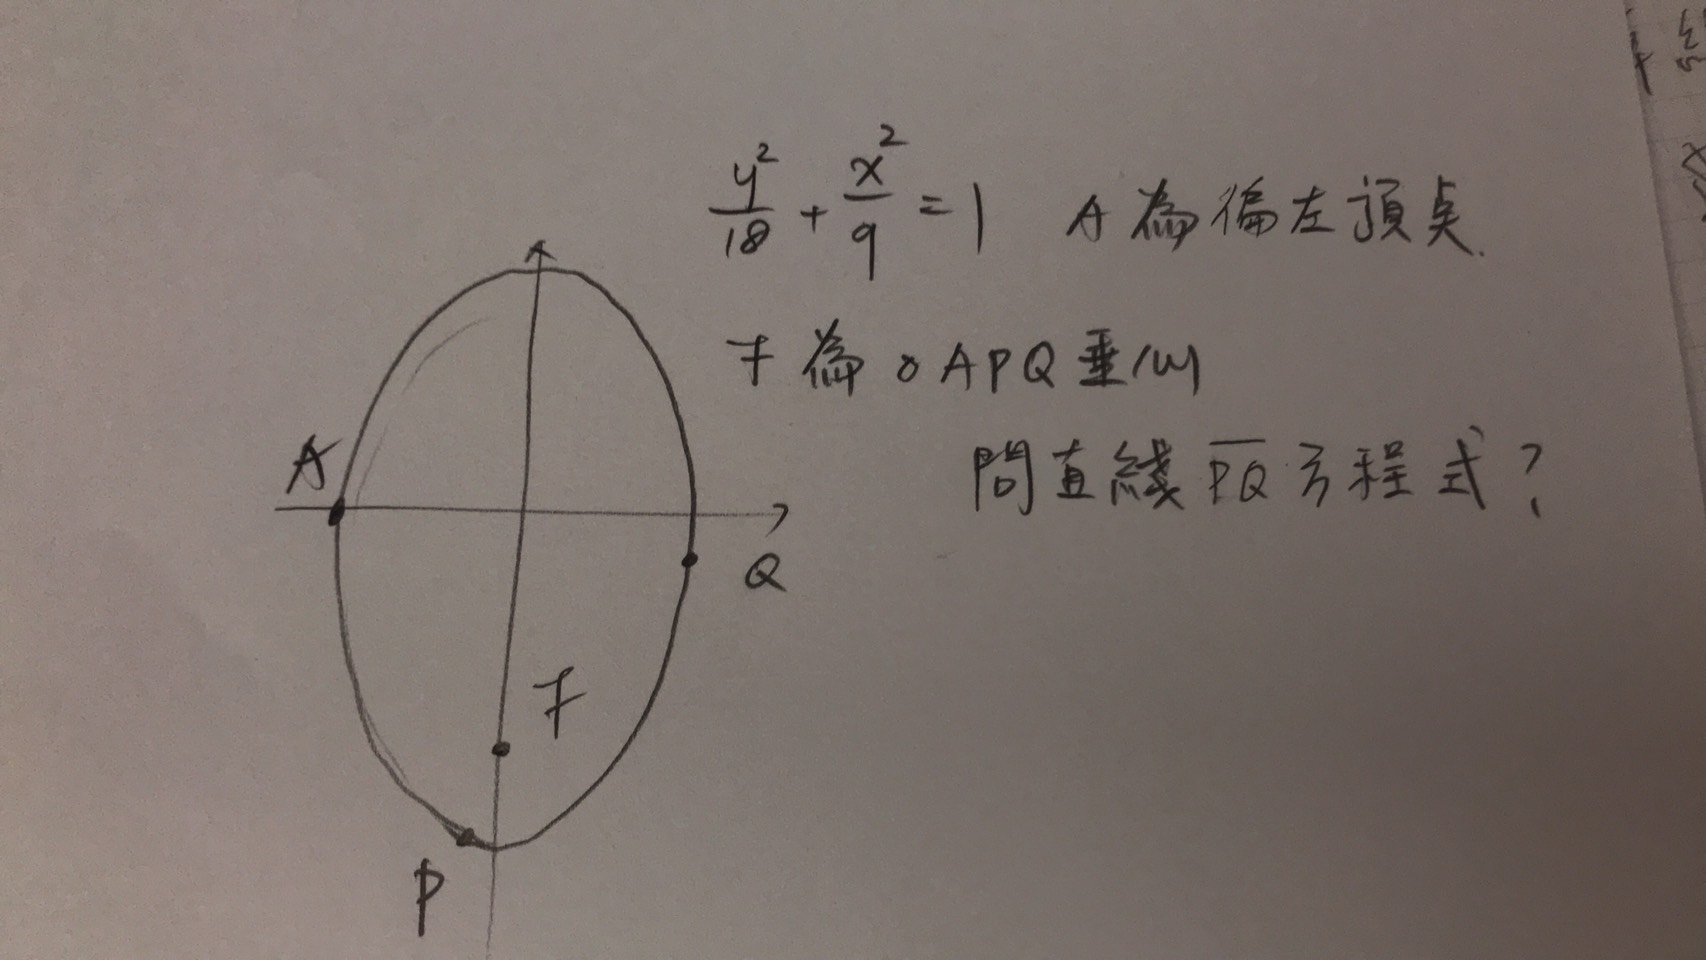 y²/18 + x²/9 = 1 A為偏左頂点.
F為△APQ垂心
問直綫 \overline{PQ} 方程式?
A
Q
F
P